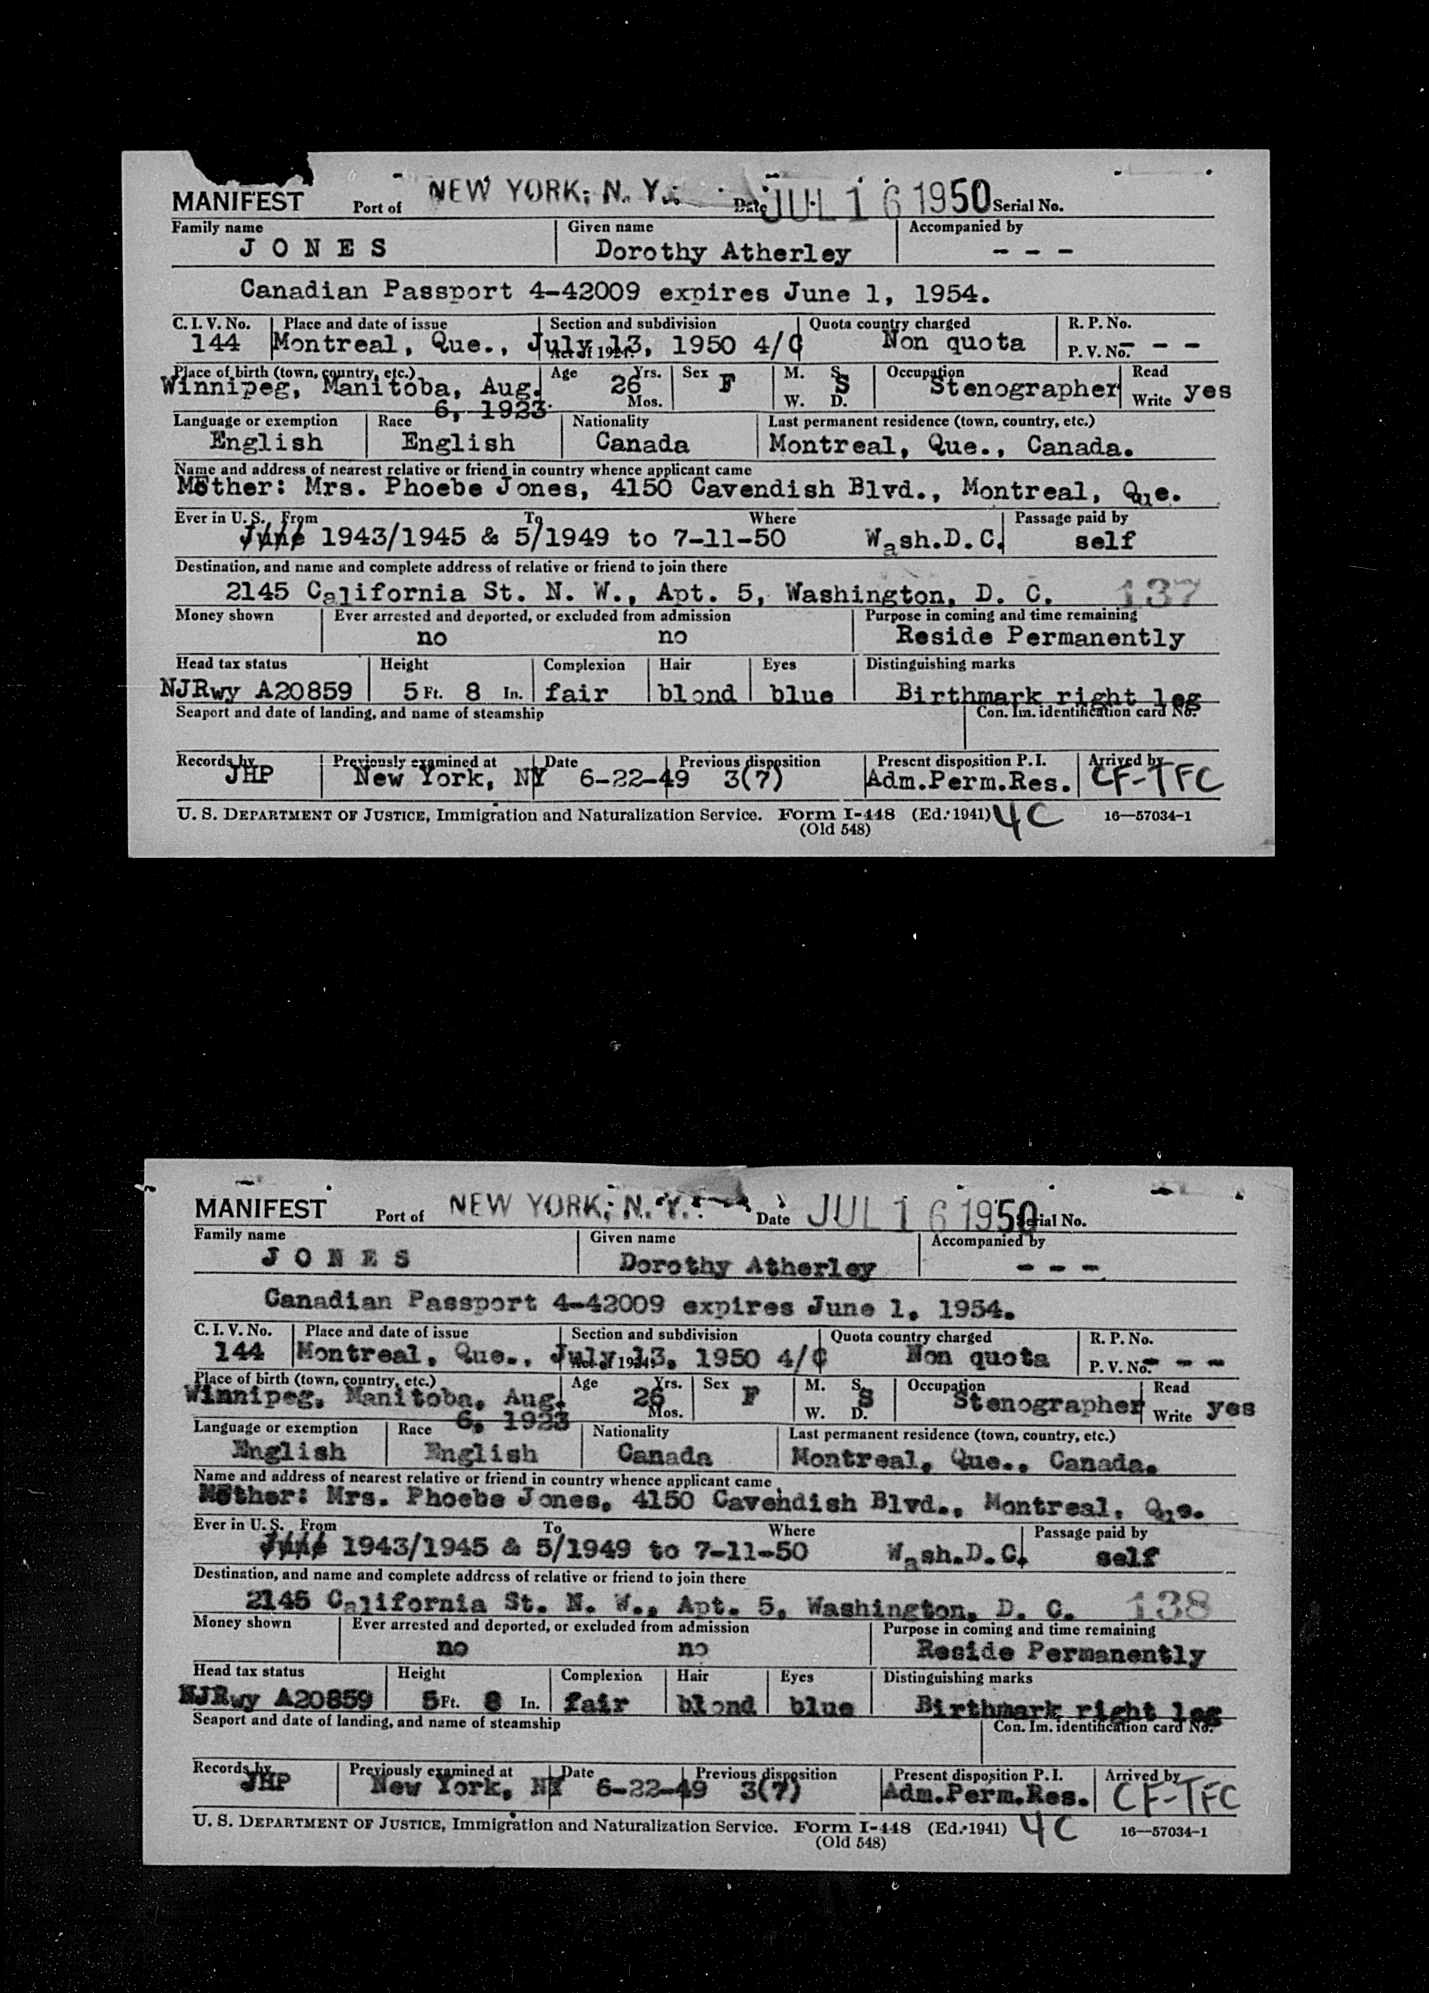 MANIFEST Port of NEW YORK, N. Y. Date JUL 16 1950 Serial No.
Family name Given name Accompanied by
JONES Dorothy Atherley - - -
Canadian Passport 4-42009 expires June 1, 1954.
C. I. V. No. Place and date of issue Section and subdivision Quota country charged R. P. No.
144 Montreal, Que., July 13, 1950 4/C Non quota P. V. No. - - -
Act of 1924
Place of birth (town, country, etc.) Age Yrs. Sex M. S. Occupation Read
Winnipeg, Manitoba, Aug. 26 F S Stenographer yes
6, 1923 Mos. W. D. Write
Language or exemption Race Nationality Last permanent residence (town, country, etc.)
English English Canada Montreal, Que., Canada.
Name and address of nearest relative or friend in country whence applicant came
Mother: Mrs. Phoebe Jones, 4150 Cavendish Blvd., Montreal, Que.
Ever in U. S. From To Where Passage paid by
June 1943/1945 & 5/1949 to 7-11-50 Wash.D.C. self
Destination, and name and complete address of relative or friend to join there
2145 California St. N. W., Apt. 5, Washington, D. C. 137
Money shown Ever arrested and deported, or excluded from admission Purpose in coming and time remaining
no no Reside Permanently
Head tax status Height Complexion Hair Eyes Distinguishing marks
NJRwy A20859 5 Ft. 8 In. fair blond blue Birthmark right leg
Seaport and date of landing, and name of steamship Con. Im. identification card No.
Records by Previously examined at Date Previous disposition Present disposition P. I. Arrived by
JHP New York, NY 6-22-49 3(7) Adm.Perm.Res. CF-TFC
U. S. DEPARTMENT OF JUSTICE, Immigration and Naturalization Service. Form I-448 (Ed. 1941) 4C 16—57034-1
(Old 548)
MANIFEST Port of NEW YORK, N. Y. Date JUL 16 1950 Serial No.
Family name Given name Accompanied by
JONES Dorothy Atherley - - -
Canadian Passport 4-42009 expires June 1, 1954.
C. I. V. No. Place and date of issue Section and subdivision Quota country charged R. P. No.
144 Montreal, Que., July 13, 1950 4/C Non quota P. V. No. - - -
Act of 1924
Place of birth (town, country, etc.) Age Yrs. Sex M. S. Occupation Read
Winnipeg, Manitoba, Aug. 26 F S Stenographer yes
6, 1923 Mos. W. D. Write
Language or exemption Race Nationality Last permanent residence (town, country, etc.)
English English Canada Montreal, Que., Canada.
Name and address of nearest relative or friend in country whence applicant came
Mother: Mrs. Phoebe Jones, 4150 Cavendish Blvd., Montreal, Que.
Ever in U. S. From To Where Passage paid by
June 1943/1945 & 5/1949 to 7-11-50 Wash.D.C. self
Destination, and name and complete address of relative or friend to join there
2145 California St. N. W., Apt. 5, Washington, D. C. 138
Money shown Ever arrested and deported, or excluded from admission Purpose in coming and time remaining
no no Reside Permanently
Head tax status Height Complexion Hair Eyes Distinguishing marks
NJRwy A20859 5 Ft. 8 In. fair blond blue Birthmark right leg
Seaport and date of landing, and name of steamship Con. Im. identification card No.
Records by Previously examined at Date Previous disposition Present disposition P. I. Arrived by
JHP New York, NY 6-22-49 3(7) Adm.Perm.Res. CF-TFC
U. S. DEPARTMENT OF JUSTICE, Immigration and Naturalization Service. Form I-448 (Ed. 1941) 4C 16—57034-1
(Old 548)